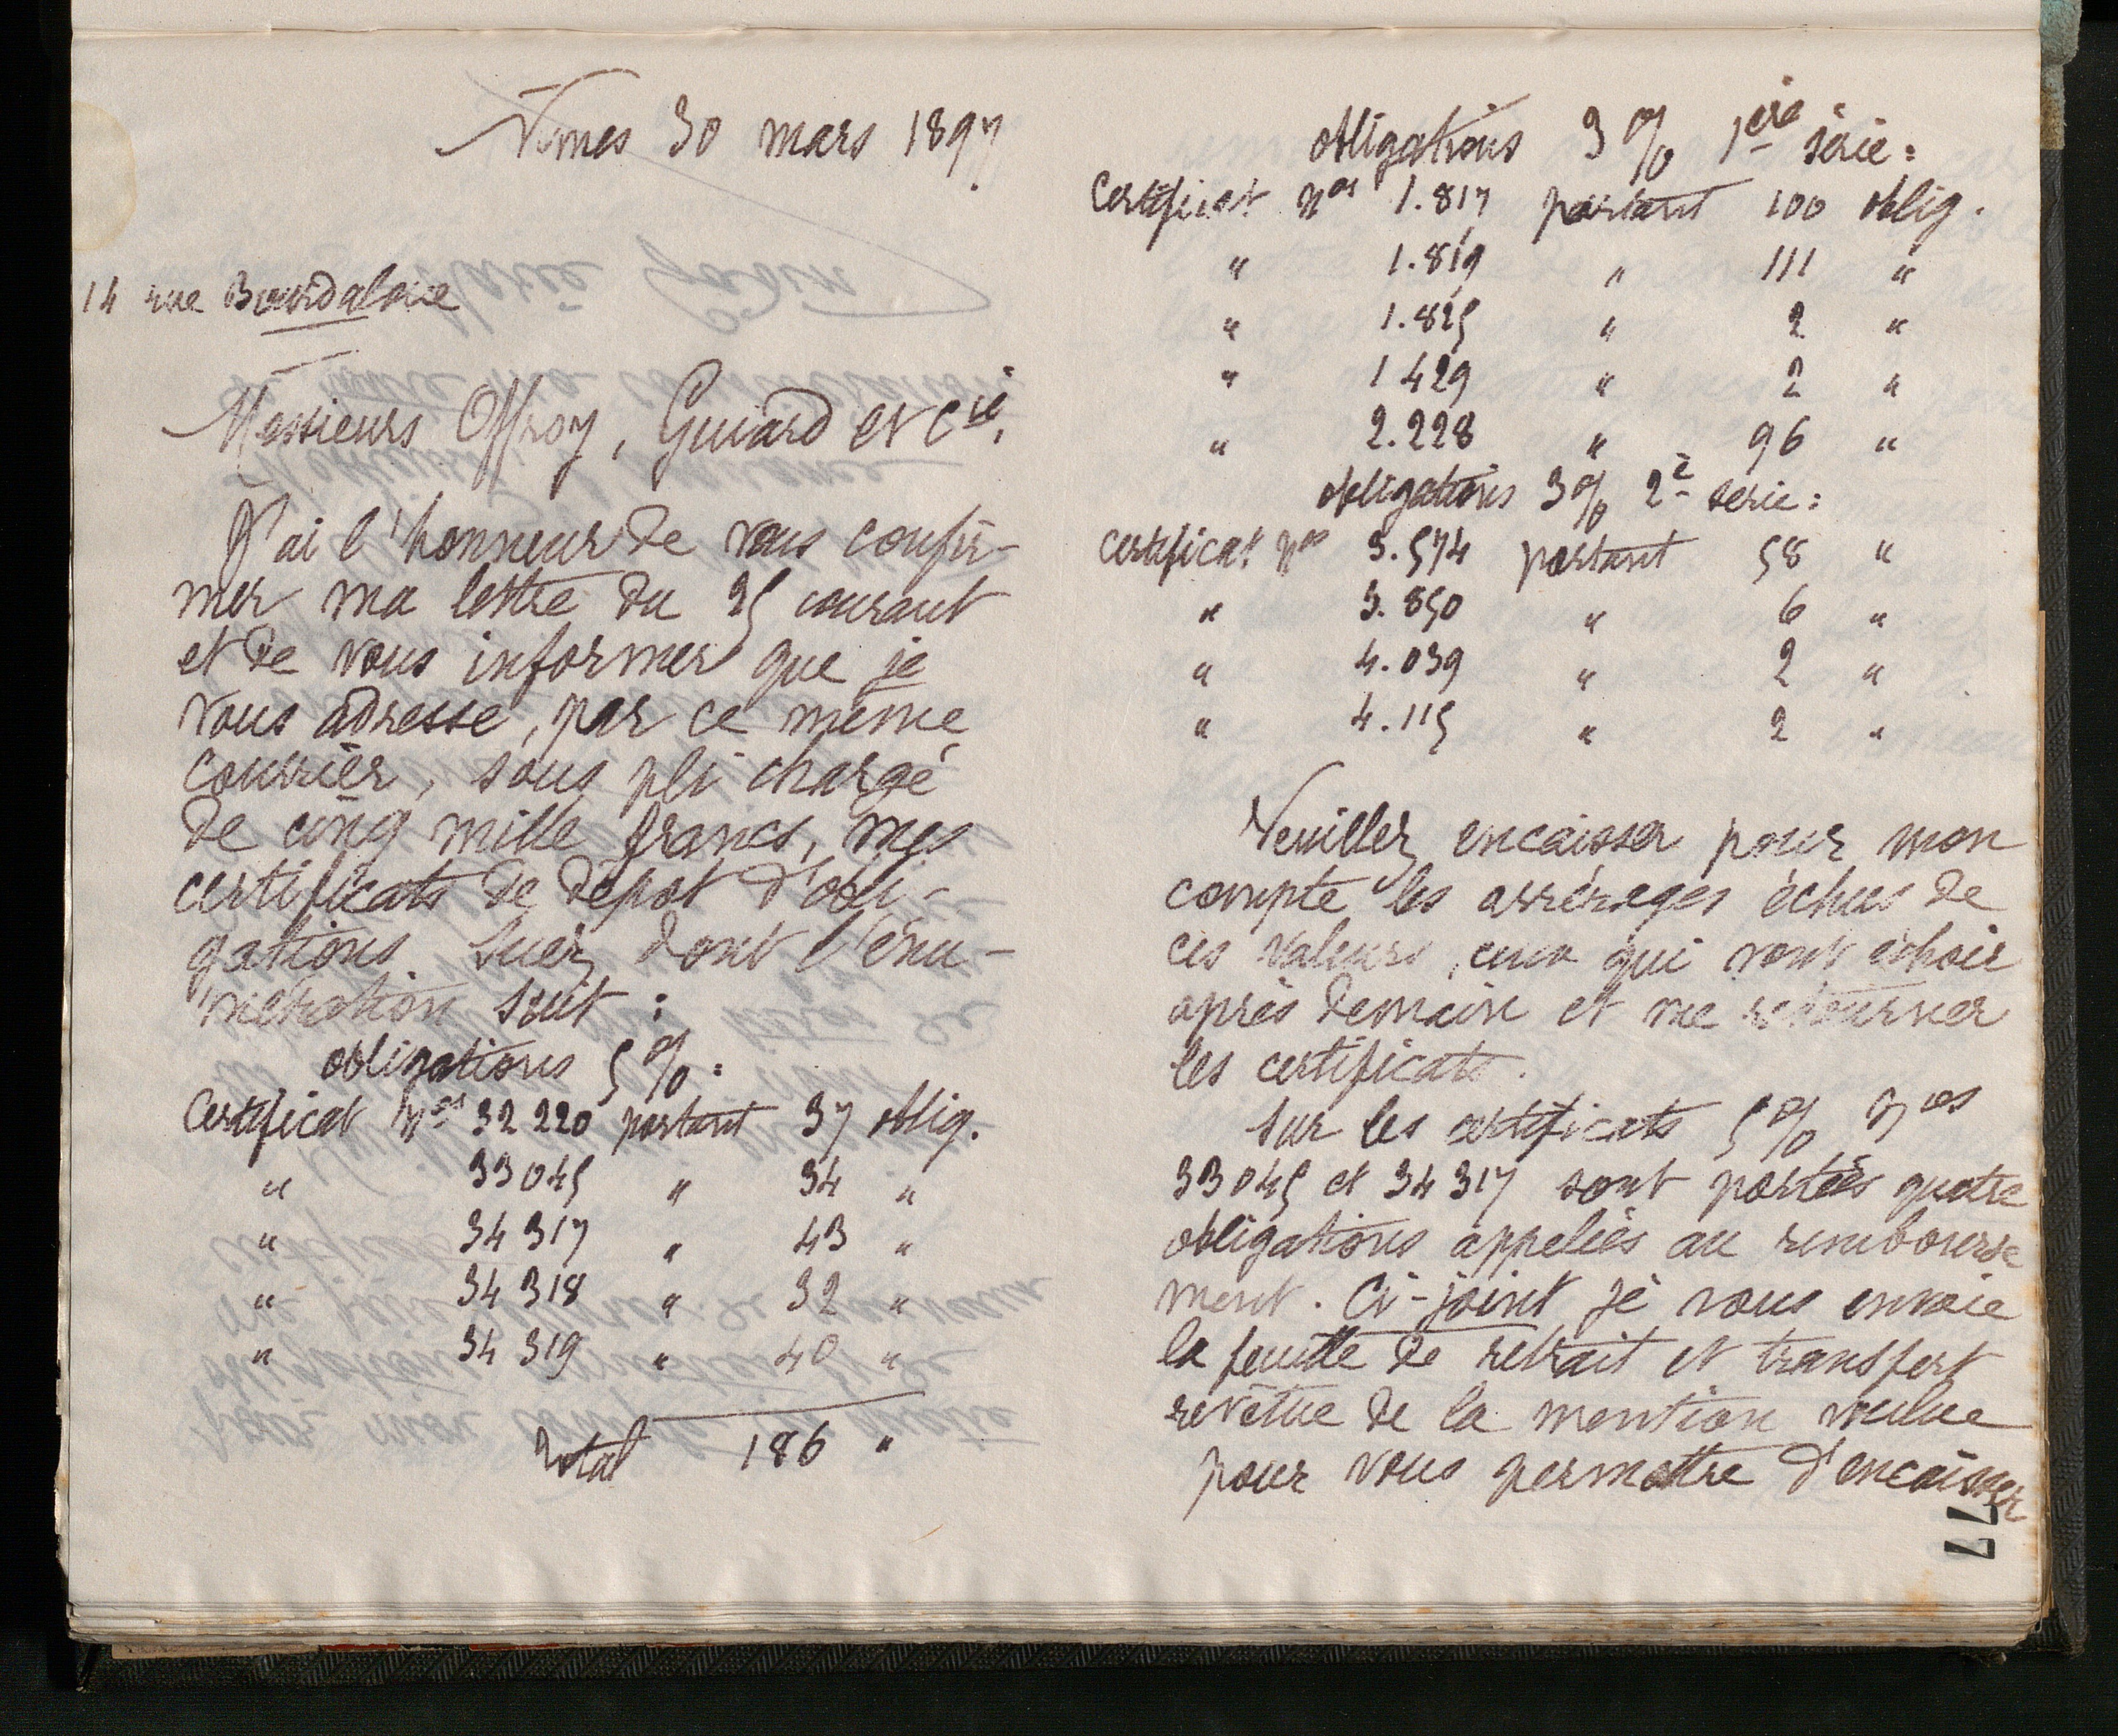 Nîmes 30 mars 1897
14 rue Bourdaloue
Messieurs Offroy, Guiard et Cie,
J'ai l'honneur de vous confir-
mer ma lettre du 25 courant
et de vous informer que je
vous adresse, par ce même
courrier, sous pli chargé
de cinq mille francs, mes
certificats de dépot d'obli-
gations Suez dont l'énu-
mération suit :
obligations 5 % :
Certificat Nos 32 220 portant 37 oblig.
" 33 045 " 34 "
" 34 317 " 43 "
" 34 318 " 32 "
" 34 319 " 40 "
Total 186 "
obligations 3 % 1ère série :
Certificat Nos 1.817 portant 100 oblig.
" 1.819 " 111 "
" 1.825 " 2 "
" 1 429 " 2 "
" 2.228 " 96 "
obligations 3 % 2e série :
Certificat Nos 3.574 portant 58 "
" 3.850 " 6 "
" 4.039 " 2 "
" 4.115 " 2 "
Veuillez encaisser pour mon
compte les arrérages échus de
ces valeurs, ceux qui vont échoir
après demain et me retourner
les certificats.
Sur les certificats 5 % Nos
33 045 et 34 317 sont portées quatre
obligations appelées au rembourse
ment. Ci-joint je vous envoie
la feuille de retrait et transfert
revêtue de la mention voulue
pour vous permettre d'encaisser
77